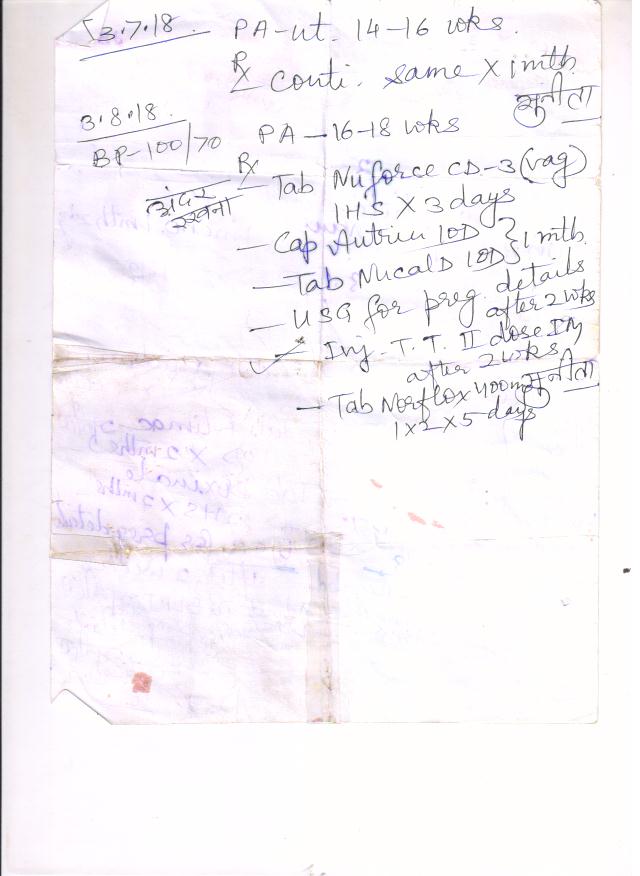 3.7.18. PA-ut. 14-16 wks.
Rx Conti. same X 1 mth.
सुनीता
3.8.18. PA-16-18 wks
BP-100/70
Rx
अंदर रखना
- Tab Nuforce CD-3 (vag)
1HS X 3 days
- Cap Autrin 1OD } 1 mth.
- Tab NucalD 1OD }
- USG for preg. details
after 2 wks
✓ Inj. T.T. II dose IM
after 2 wks
सुनीता
- Tab Norflox 400mg
1x2x5 days